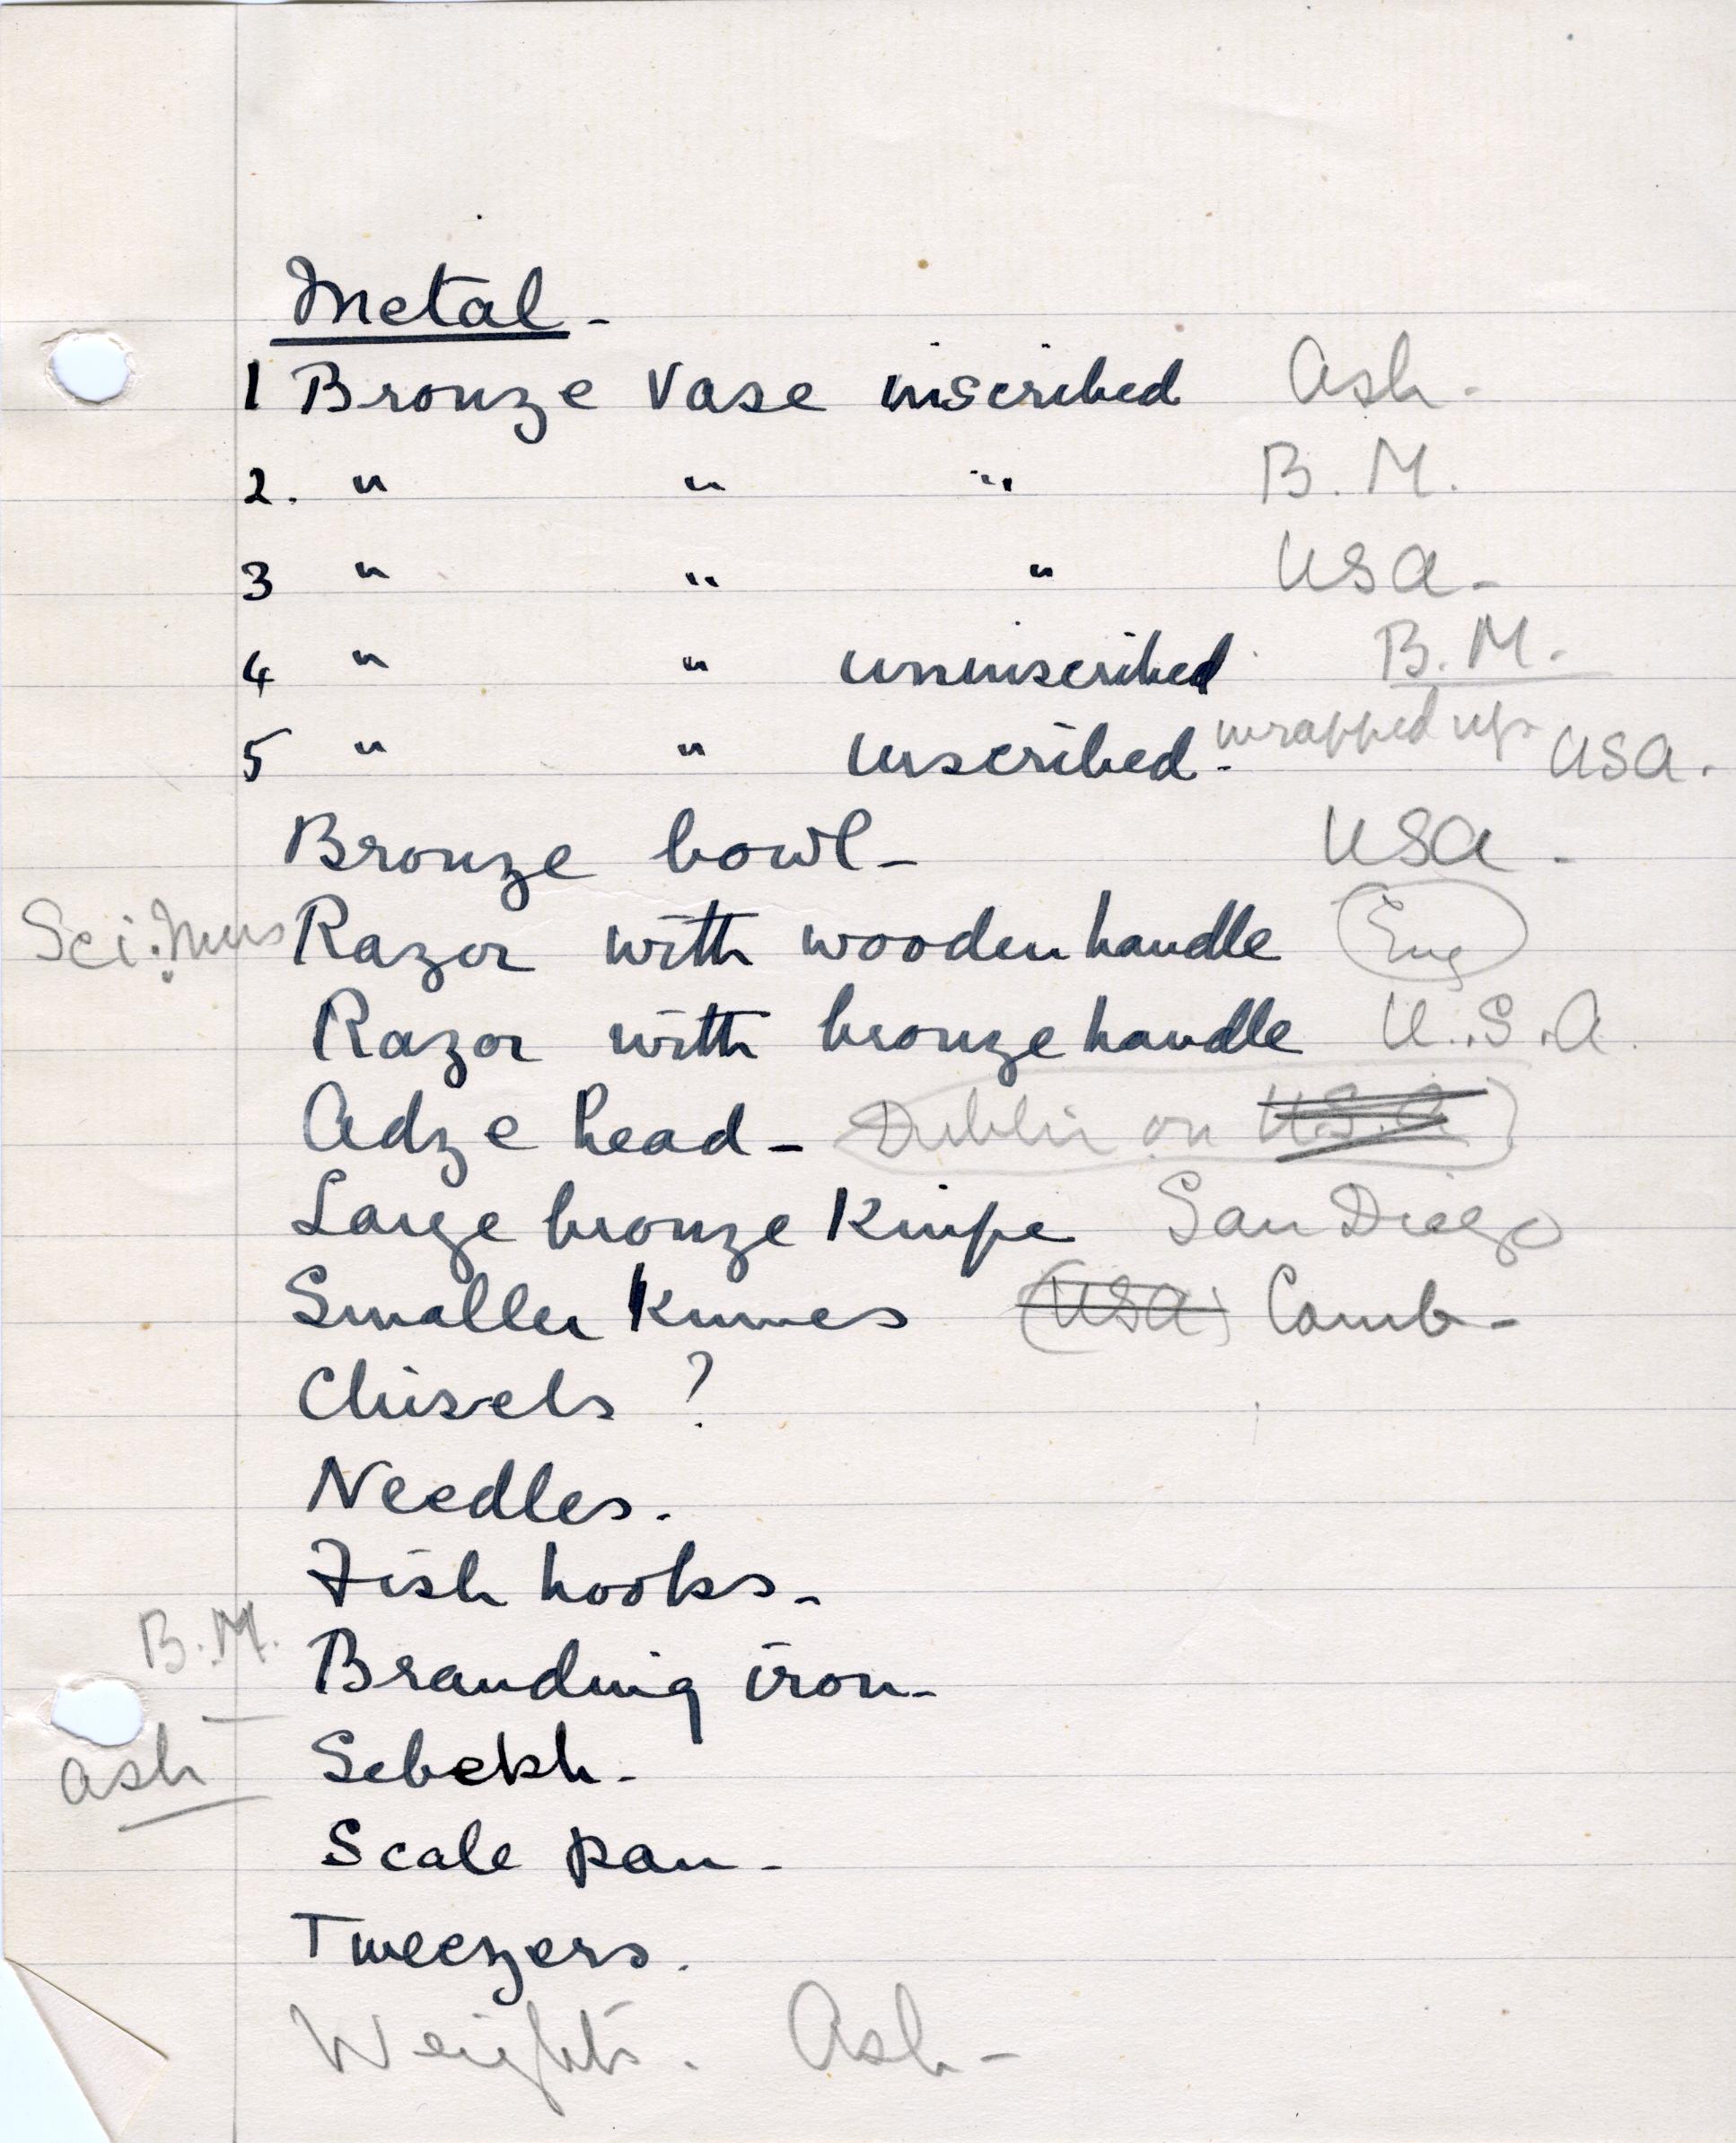 Metal -
1 Bronze Vase inscribed Ash -
2. " " " B. M.
3 " " " USA -
4 " " uninscribed B. M.
5 " " inscribed - wrapped up USA.
Bronze bowl - USA -
Sci: Mus Razor with wooden handle Eng
Razor with bronze handle U.S.A.
Adze head - (Dublin or U.S.A)
Large bronze Knife San Diego
Smaller Knives (USA) Camb -
Chisels ?
Needles.
Fish hooks -
B.M. Branding iron -
Ash Sebekh -
Scale pan -
Tweezers.
Weights. Ash -